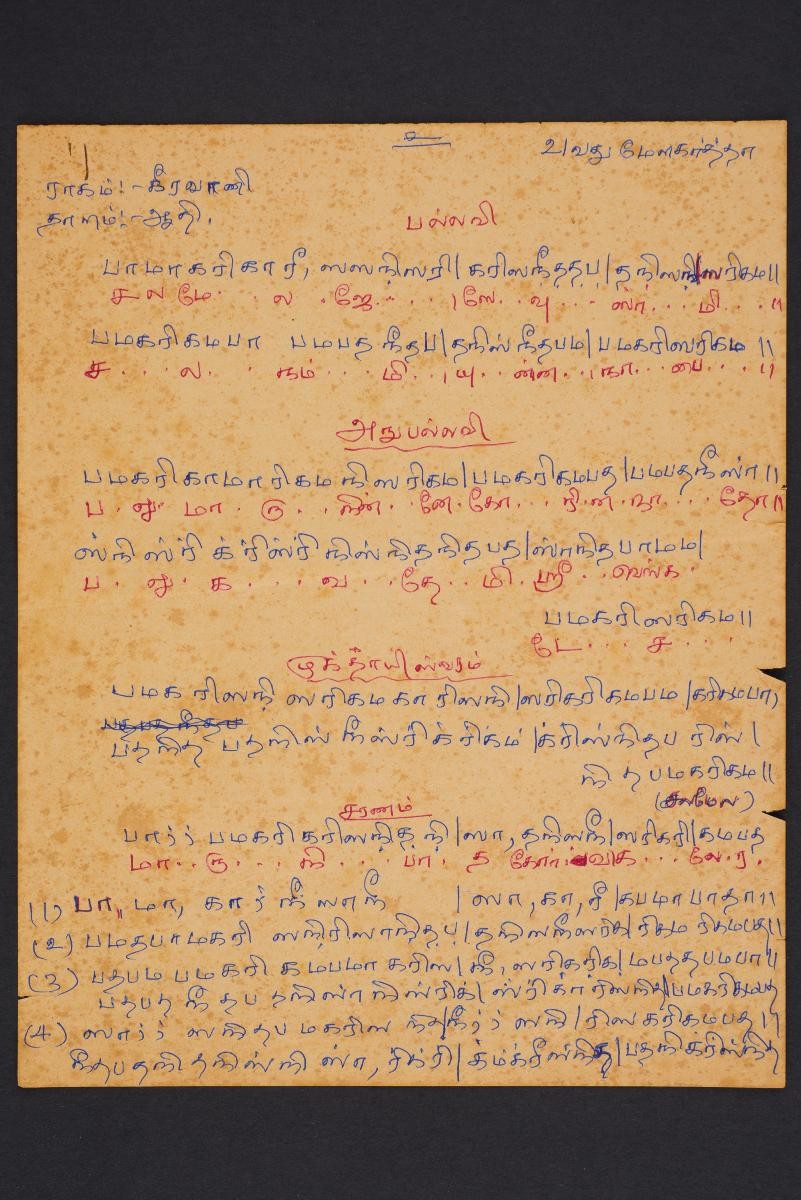 உ
21வது மேளகர்த்தா
ராகம்:- கீரவாணி
தாளம்:- ஆதி.
பல்லவி
பாமாகரிகாரீ, ஸஸநிஸரி| கரிஸநீததப|தநிஸநி|ஸரிகம||
சலமே . . ல . ஜே . . . . |ஸே . . வு . . . ஸா . . . மி . . . ||
பமகரிகமபா பமபத நீதப|தநிஸ் நீதபம|பமகரிஸரிகம ||
ச . . . ல . . . கம் . . . மி . . |யு . . ன்ன . . |நா . . பை . . . ||
அநுபல்லவி
பமகரிகாமாரிகம நிஸரிகம|பமகரிகமபத|பமபதநீஸ்ா||
ஸ்நிஸ்ரி க்ரிஸ்ரிநிஸ்நிதநிதபத|ஸ்ாநிதபாமம|
ப . லு . க . . . வ . . . தே . . மி . ஸ்ரீ . . வெங்க .
பமகரிஸரிகம||
டே . . . ச . . . .
முக்தாயிஸ்வரம்
பமக ரிஸநி ஸரிகமகாரிஸநி|ஸரிகரிகமபம |கரிகமபா,
பதநித பதநிஸ் நீஸ்ரிக்ரிக்ம் |க்ரிஸ்நிதப ரிஸ் |
நி த பமகரிகம||
(சலமேல)
சரணம்
பா,, பமகரிகரிஸநிதநி|ஸா,தநிஸநீ|ஸரிகரி|கமபத
(1) பா,, மா, கா , நீஸாநீ |ஸா,கா,ரீ|கபமாபாதா||
(2) பமதபாமகரி ஸநிரிஸாநிதப|தநிஸநீஸரிக|ரிகம ரிகமபத||
(3) பதபம பமகரி கமபமா கரிஸ|நீ, ஸரிகரிக|மபததபமபா||
(4) ஸா,, ஸநிதப மகரிஸ நி|நீ,, ஸநி|ரிஸகரிகமபத||